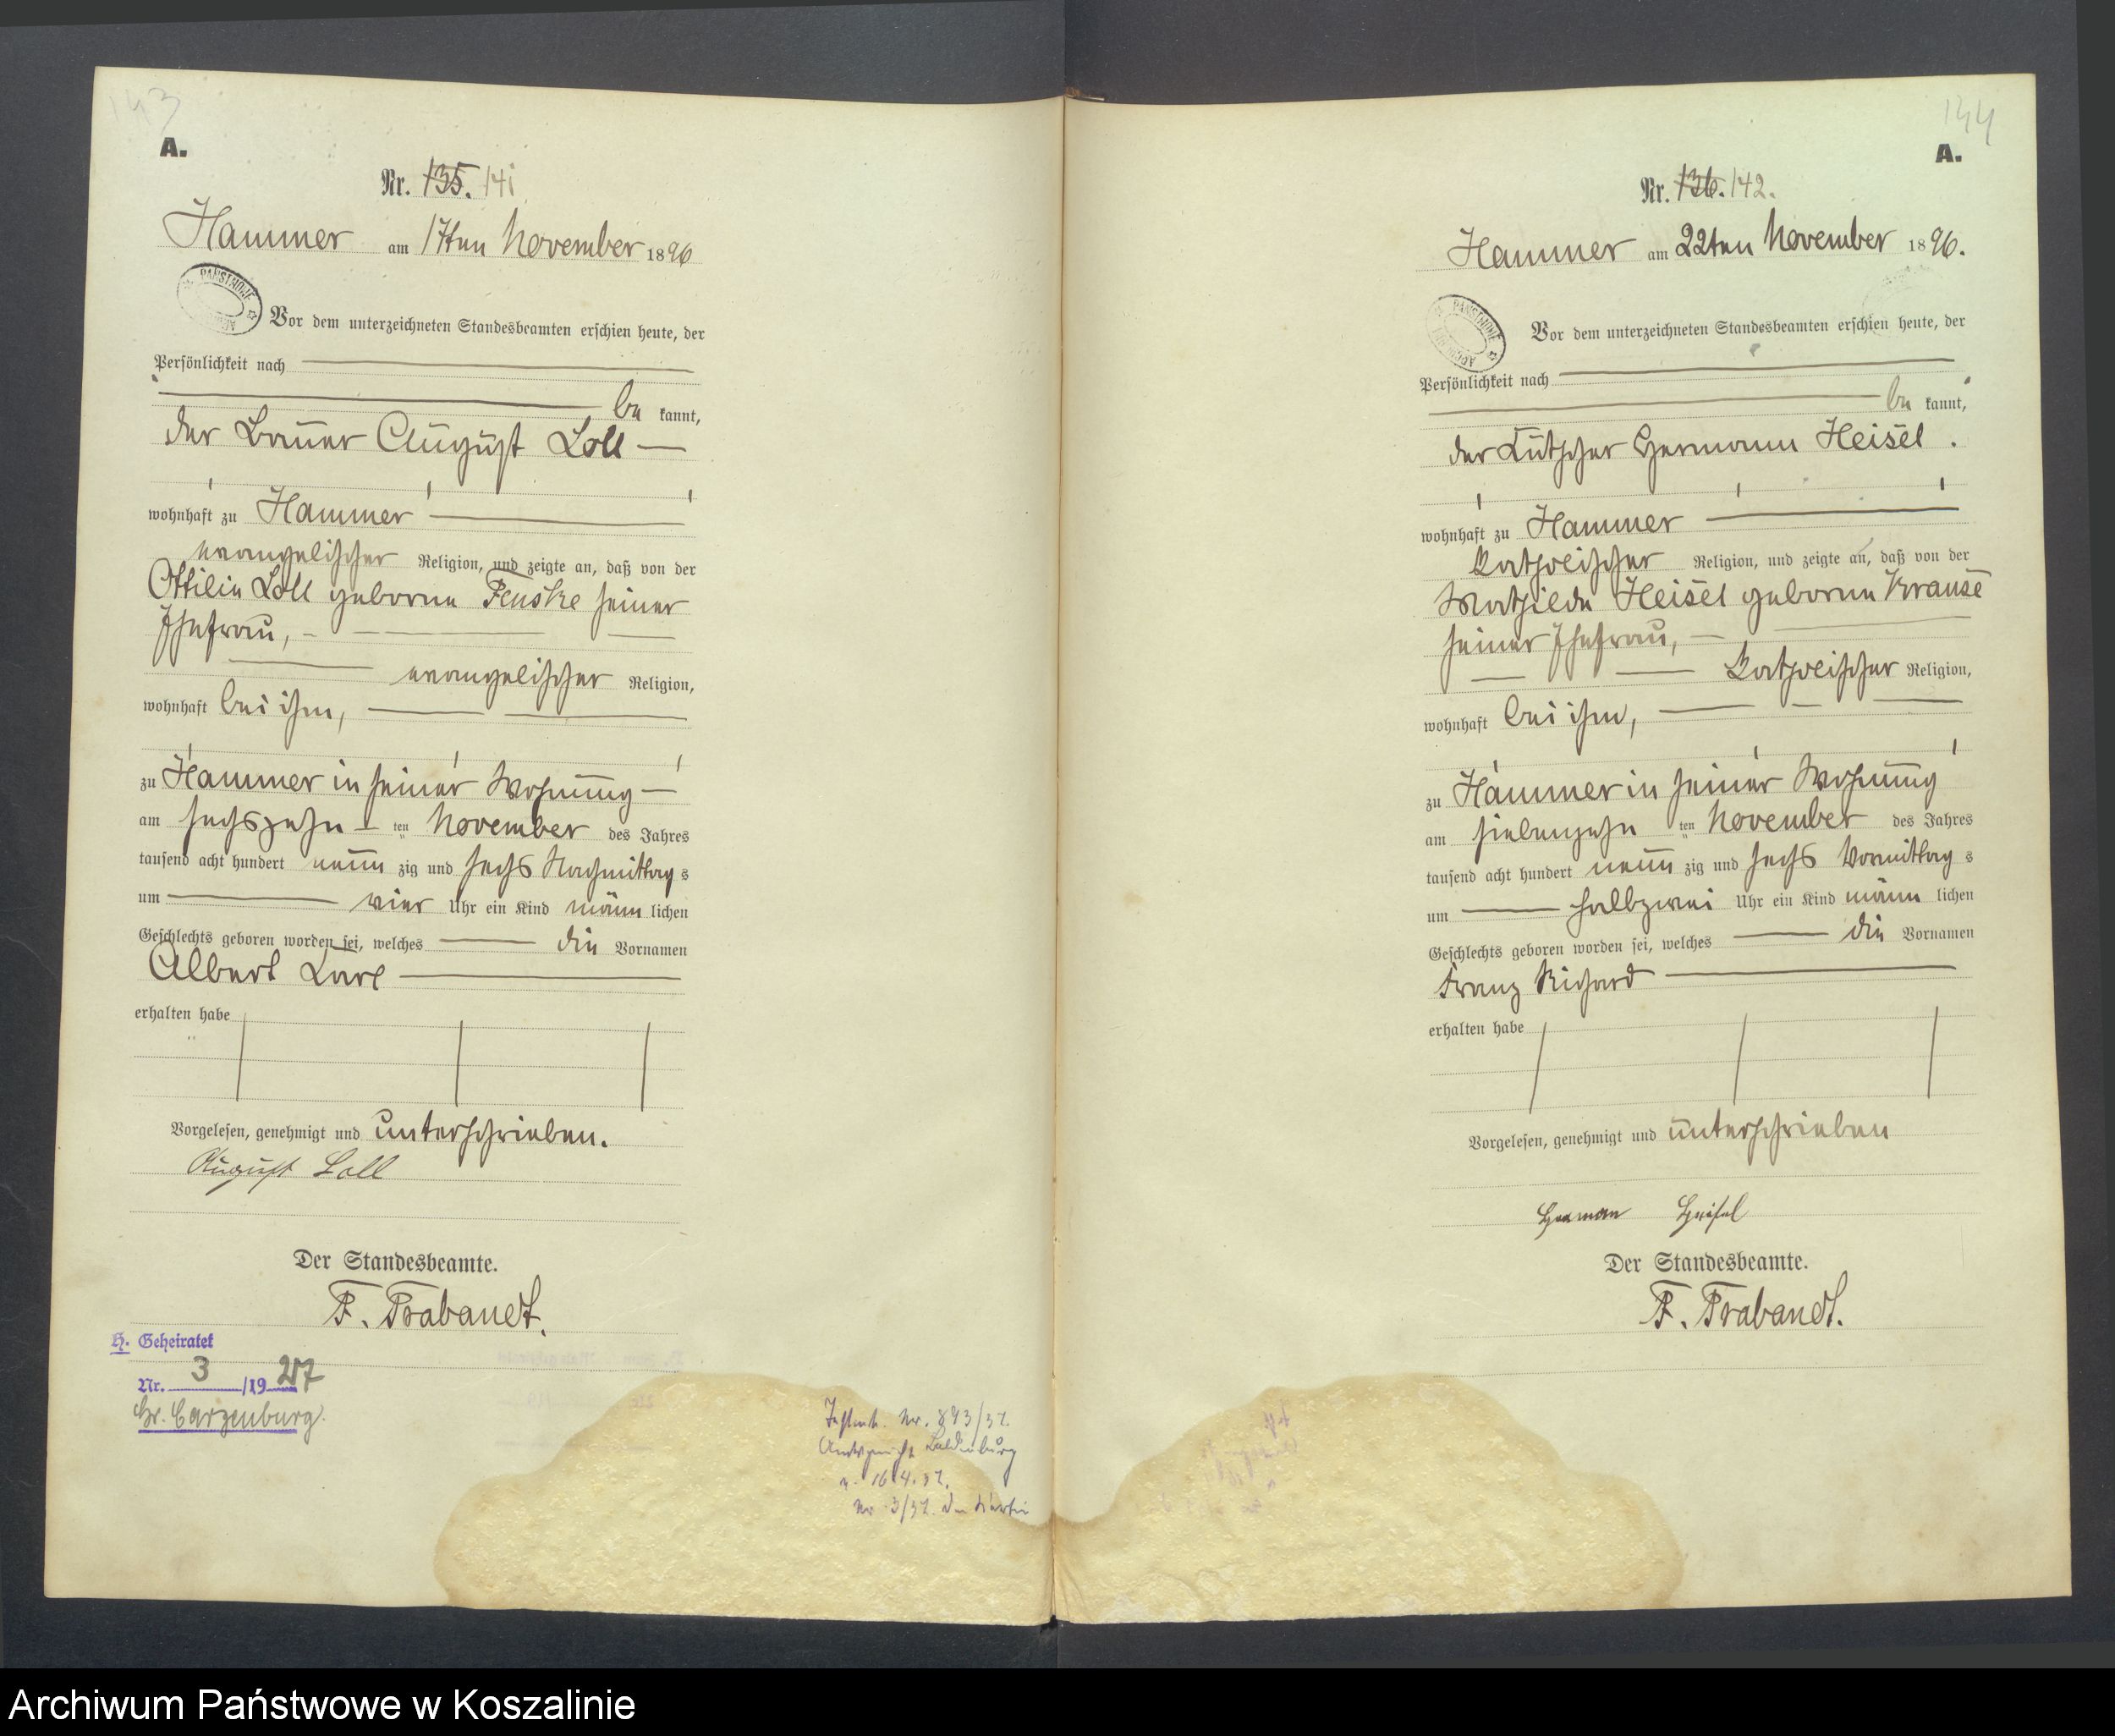 143
A.
Nr. 135. 141
Hammer am 17ten November 1896
PAŃSTWOWE
Vor dem unterzeichneten Standesbeamten erschien heute, der
Persönlichkeit nach
be kannt,
der Bauer August Loll
wohnhaft zu Hammer
evangelischer Religion, und zeigte an, daß von der
Ottilie Loll geborene Fenske seiner
Ehefrau,
evangelischer Religion,
wohnhaft bei ihm,
zu Hammer in seiner Wohnung
am sechszehn ten November des Jahres
tausend acht hundert neun zig und sechs Nachmittag s
um vier Uhr ein Kind männ lichen
Geschlechts geboren worden sei, welches die Vornamen
Albert Karl
erhalten habe
Vorgelesen, genehmigt und unterschrieben.
August Loll
Der Standesbeamte.
F. Trabandt.
H. Geheiratet
Nr. 3 /19 27
Gr. Carzenburg.
Nr. 893/37.
Amtsgericht Baldenburg
v. 16.4.37.
Nr 3/37.
144
A.
Nr. 136. 142.
Hammer am 22ten November 1896.
PAŃSTWOWE
Vor dem unterzeichneten Standesbeamten erschien heute, der
Persönlichkeit nach
be kannt,
der Kutscher Hermann Heisel.
wohnhaft zu Hammer
katholischer Religion, und zeigte an, daß von der
Mathilde Heisel geborene Krause
seiner Ehefrau,
katholischer Religion,
wohnhaft bei ihm,
zu Hammer in seiner Wohnung
am siebenzehn ten November des Jahres
tausend acht hundert neun zig und sechs Vormittag s
um halbzwei Uhr ein Kind männ lichen
Geschlechts geboren worden sei, welches die Vornamen
Franz Richard
erhalten habe
Vorgelesen, genehmigt und unterschrieben
Herman Heisel
Der Standesbeamte.
F. Trabandt.
Archiwum Państwowe w Koszalinie